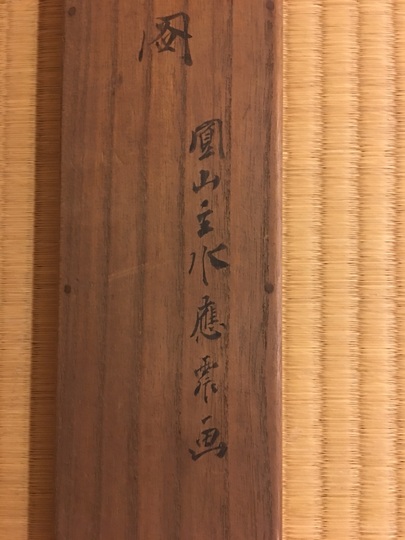 圖
圓山主水應震画